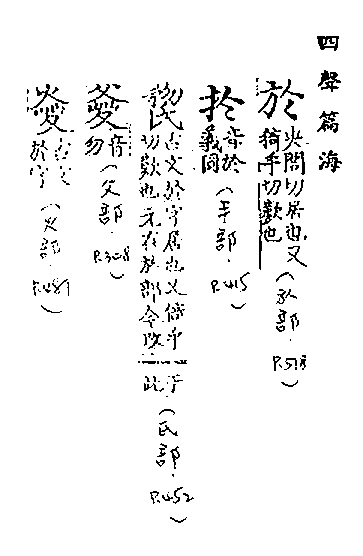 四聲篇海
於
央閭切居也又
倚乎切歎也
(㫃部.
P.518)
扵
音於
義同
(手部.
P.415)
古文於字居也又倚乎
切歎也元在於部今改
于此
(氏部.
P.452)
音
勿
(父部.
P.308)
古文
於字
(火部.
P.481)